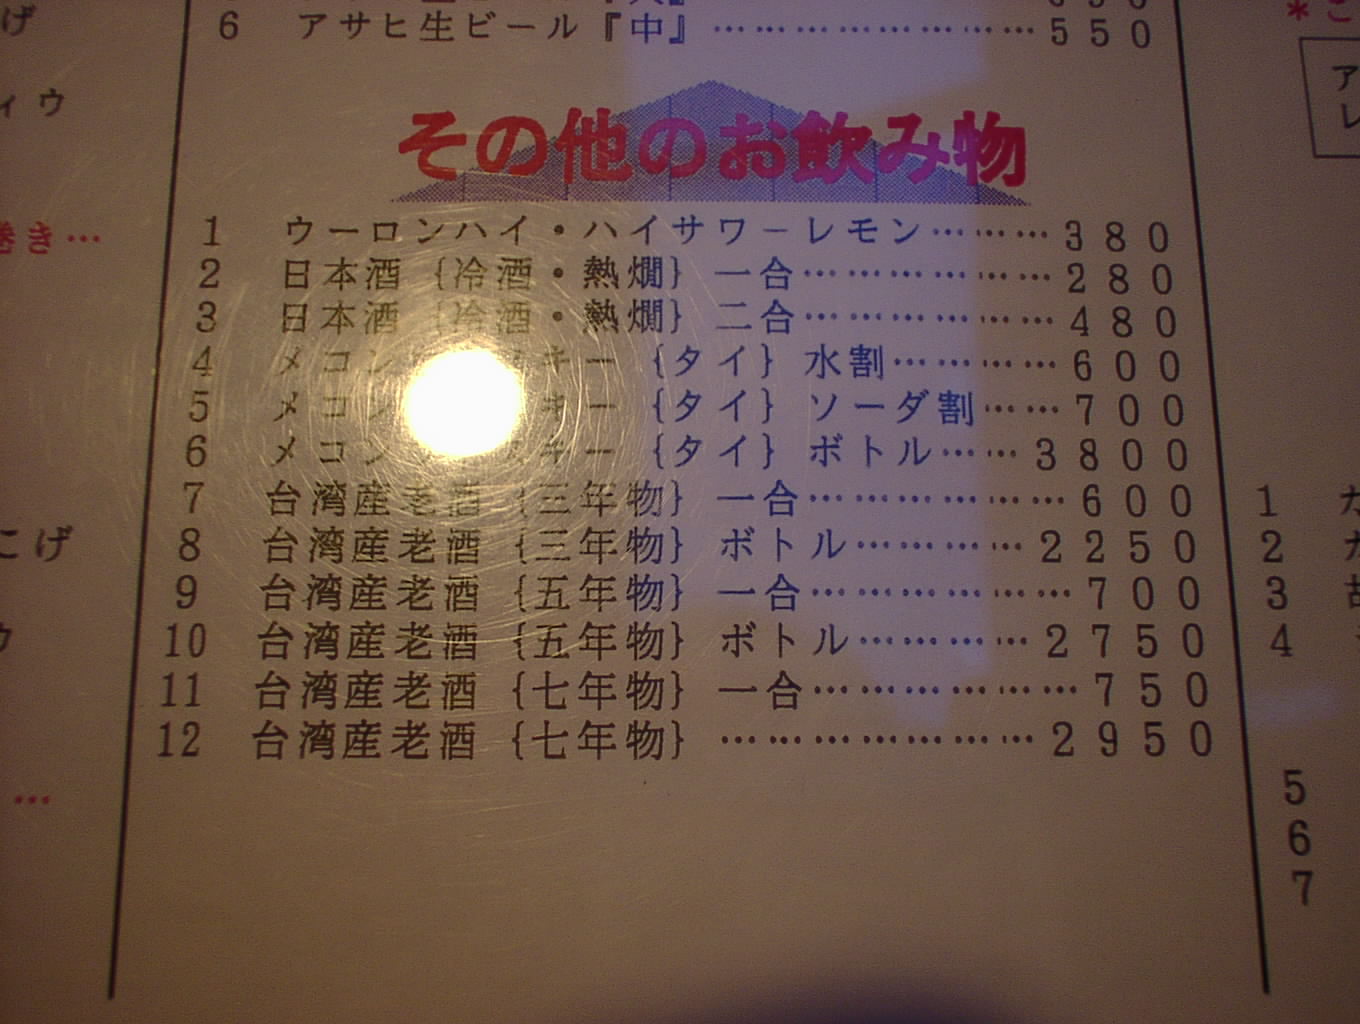 6 アサヒ生ビール『中』…………………… 550
その他のお飲み物
1 ウーロンハイ・ハイサワーレモン……… 380
2 日本酒 {冷酒・熱燗} 一合………………… 280
3 日本酒 {冷酒・熱燗} 二合………………… 480
4 メコン キー {タイ} 水割………… 600
5 メコン キー {タイ} ソーダ割…… 700
6 メコン キー {タイ} ボトル…… 3800
7 台湾産老酒 {三年物} 一合………………… 600
8 台湾産老酒 {三年物} ボトル………… 2250
9 台湾産老酒 {五年物} 一合………………… 700
10 台湾産老酒 {五年物} ボトル………… 2750
11 台湾産老酒 {七年物} 一合………………… 750
12 台湾産老酒 {七年物} …………………… 2950
げ
ィウ
巻き…
こげ
ウ
…
1
2
3
4
5
6
7